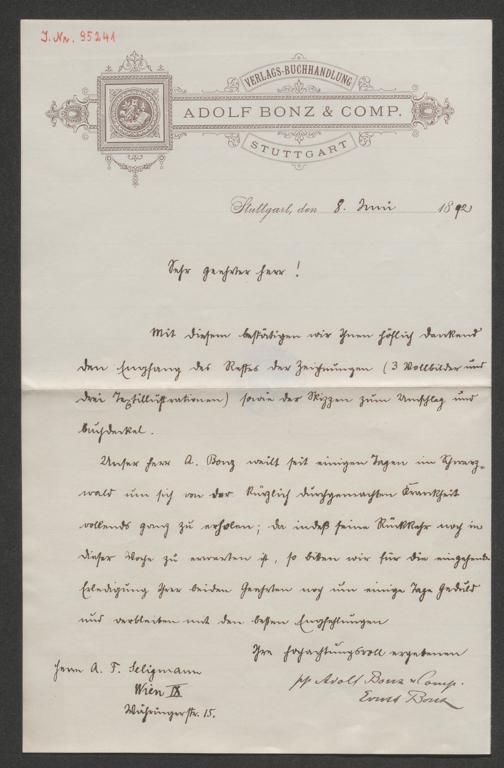 J. Nr. 95241
VERLAGS-BUCHHANDLUNG
ADOLF BONZ & COMP.
STUTTGART
Stuttgart, den 8. Juni 1892
Sehr geehrter Herr!
Mit Diesem bestätigen wir Ihnen höflich dankend
den Empfang des Restes der Zeichnungen (3 Vollbilder und
drei Textillustrationen) sowie der Skizzen zum Umschlag und
Buchdeckel.
Unser Herr A. Bonz weilt seit einigen Tagen im Schwarz-
wald um sich von der kürzlich durchgemachten Krankheit
vollends ganz zu erholen; da indeß seine Rückkehr noch in
dieser Woche zu erwarten ist, so bitten wir für die eingehende
Erledigung Ihrer beiden Geehrten noch um einige Tage Geduld
und verbleiben mit den besten Empfehlungen
Ihre hochachtungsvoll ergebenen
pp Adolf Bonz & Comp.
Ernst Bonz
Herrn A. F. Seligmann
Wien IX
Währingerstr. 15.